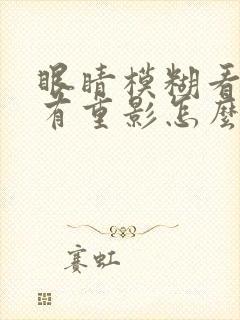 眼睛模糊看
有重影怎麼
赛虹